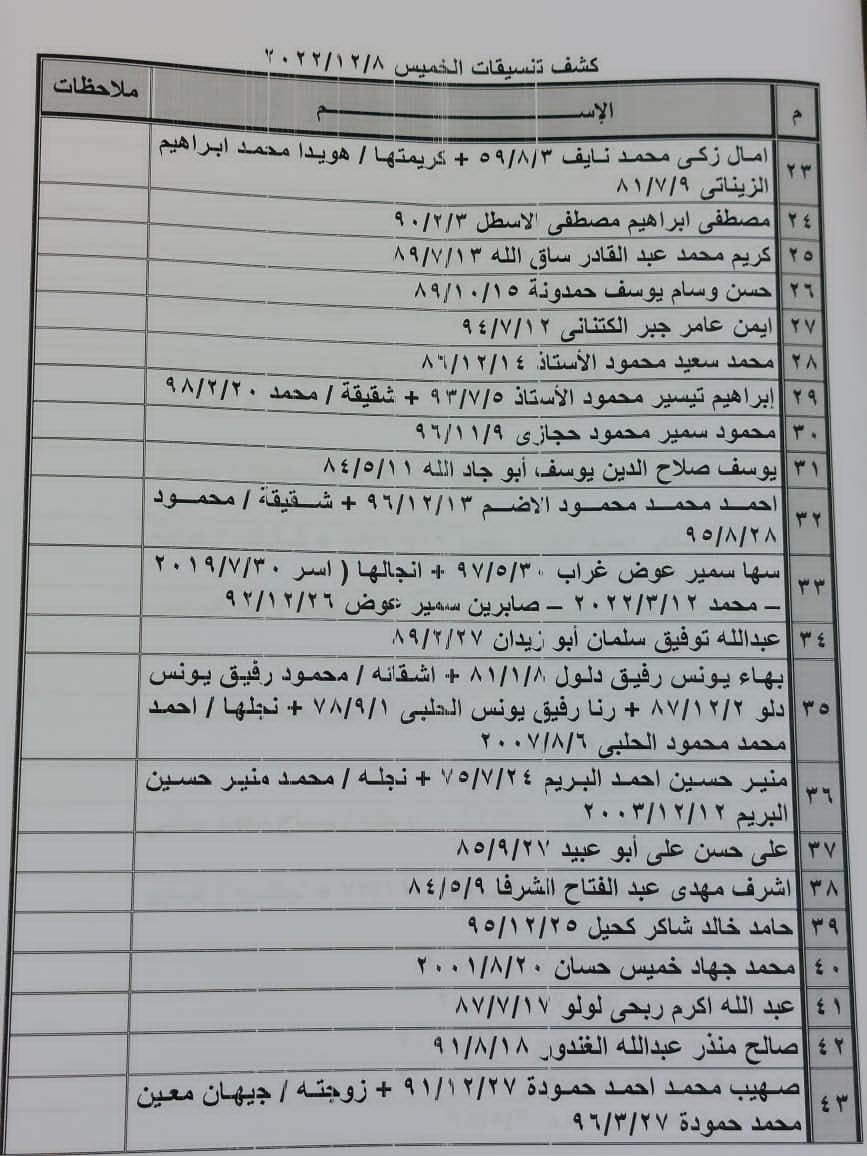 كشف تنسيقات الخميس ٢٠٢٢/١٢/٨
م الإســـــــم ملاحظات
٢٣ امال زكى محمد نايف ٥٩/٨/٣ + كريمتها / هويدا محمد ابراهيم
الزيناتى ٨١/٧/٩
٢٤ مصطفى ابراهيم مصطفى الاسطل ٩٠/٢/٣
٢٥ كريم محمد عبد القادر ساق الله ٨٩/٧/١٣
٢٦ حسن وسام يوسف حمدونة ٨٩/١٠/١٥
٢٧ ايمن عامر جبر الكتنانى ٩٤/٧/١٢
٢٨ محمد سعيد محمود الأستاذ ٨٦/١٢/١٤
٢٩ إبراهيم تيسير محمود الأستاذ ٩٣/٧/٥ + شقيقة / محمد ٩٨/٢/٢٠
٣٠ محمود سمير محمود حجازى ٩٦/١١/٩
٣١ يوسف صلاح الدين يوسف أبو جاد الله ٨٤/٥/١١
٣٢ احمد محمد محمود الاضم ٩٦/١٢/١٣ + شقيقة / محمود
٩٥/٨/٢٨
٣٣ سها سمير عوض غراب ٩٧/٥/٣٠ + انجالها ( اسر ٢٠١٩/٧/٣٠
– محمد ٢٠٢٢/٣/١٢ – صابرين سمير عوض ٩٢/١٢/٢٦
٣٤ عبدالله توفيق سلمان أبو زيدان ٨٩/٢/٢٧
٣٥ بهاء يونس رفيق دلول ٨١/١/٨ + اشقائه / محمود رفيق يونس
دلو ٨٧/١٢/٢ + رنا رفيق يونس الحلبى ٧٨/٩/١ + نجلها / احمد
محمد محمود الحلبى ٢٠٠٧/٨/٦
٣٦ منير حسين احمد البريم ٧٥/٧/٢٤ + نجله / محمد منير حسين
البريم ٢٠٠٣/١٢/١٢
٣٧ على حسن على أبو عبيد ٨٥/٩/٢٧
٣٨ اشرف مهدى عبد الفتاح الشرفا ٨٤/٥/٩
٣٩ حامد خالد شاكر كحيل ٩٥/١٢/٢٥
٤٠ محمد جهاد خميس حسان ٢٠٠١/٨/٢٠
٤١ عبد الله اكرم ربحى لولو ٨٧/٧/١٧
٤٢ صالح منذر عبدالله الغندور ٩١/٨/١٨
٤٣ صهيب محمد احمد حمودة ٩١/١٢/٢٧ + زوجته / جيهان معين
محمد حمودة ٩٦/٣/٢٧